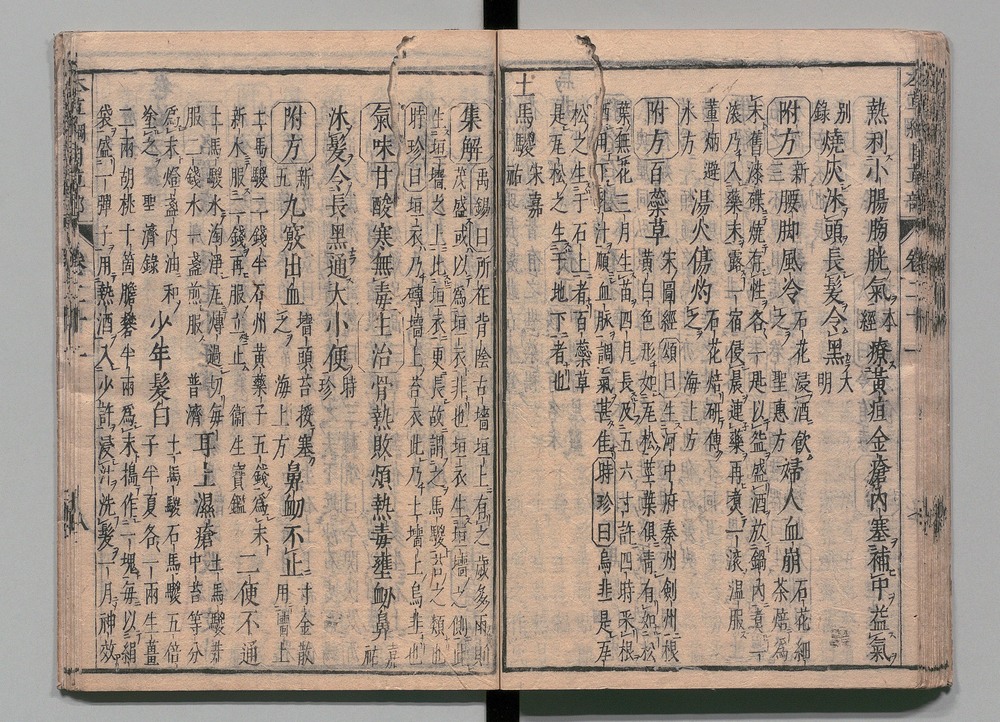 熱利小腸膀胱氣本經療黃疸金瘡內塞補中益氣
別錄燒灰沐頭長髮令黑大明
附方新三腰脚風冷石花浸酒飲之聖惠方婦人血崩石花細茶焙為
末舊漆碟燒存性各一匙以盌盛酒放鍋內煮一
滾乃入藥末露一宿侵晨連藥再煑一滾溫服
董炳避水方湯火傷灼石花焙研傅之海上方
附方百蘂草宋圖經頌曰生河中府秦州劍州根
黃白色形如瓦松莖葉俱靑有如松
葉無花三月生苗四月長及五六寸許四時采根
酒用下乳汁順血脉調氣甚佳時珍曰烏韭是瓦
松之生于石上者百蘂草
是瓦松之生于地下者也
土馬騣宋嘉祐
集解禹錫曰所在背陰古墻垣上有之歲多雨則
茂盛或以為垣衣非也垣衣生垣墻之側此
生垣墻之上比垣衣更長故謂之馬騣苔之類也
時珍曰垣衣乃磚墻上苔衣此乃土墻上烏韭也
氣味甘酸寒無毒主治骨熱敗煩熱毒壅衂鼻嘉祐
沐髮令長黑通大小便時珍
附方新五九竅出血墻頭苔挼塞之海上方鼻衂不止寸金散用墻上
土馬騣二錢半石州黃藥子五錢為末
新水服二錢再服立止衞生寶鑑二便不通
土馬騣水淘淨瓦煿過切每
服二錢水一盞煎服普濟耳上濕瘡土馬騣井中苔等分
為末燈盞內油和
塗之聖濟錄少年髮白土馬騣石馬騣五倍
子半夏各一兩生薑
二兩胡桃十箇膽礬半兩為末搗作一塊每以絹
袋盛一彈子用熱酒入少許浸汁洗髮一月神效